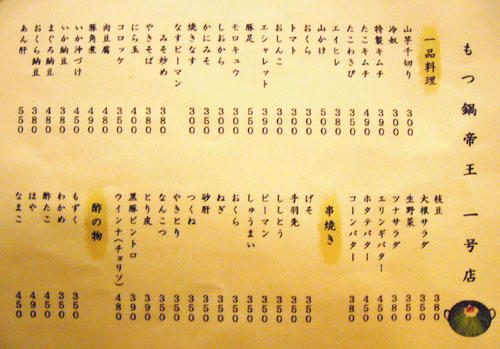 もつ鍋帝王 一号店
一品料理
山芋千切り 300
冷奴 300
特製キムチ 300
たこキムチ 490
たこわさび 350
エイヒレ 380
山かけ 500
おくら 350
トマト 350
おしんこ 300
エシャレット 390
豚足 550
モロキュウ 300
しおから 300
かにみそ 350
焼きなす 300
なすピーマン
みそ炒め 380
やきそば 380
にら玉 400
コロッケ 350
肉豆腐 480
豚角煮 490
いか沖づけ 450
いか納豆 380
まぐろ納豆 480
おくら納豆 380
あん肝 550
枝豆 350
大根サラダ 550
生野菜 350
ツナサラダ 380
エリンギバター 450
ホタテバター 450
コーンバター 380
串焼き
げそ 350
手羽先 350
ししとう 350
ピーマン 350
しゅうまい 350
おくら 350
ねぎ 350
砂肝 350
つくね 350
やきとり 350
なんこつ 350
とり皮 390
黒豚ピントロ 390
ウインナ(チョリソ) 480
酢の物
もずく 350
わかめ 350
酢たこ 450
ほや 490
なまこ 450